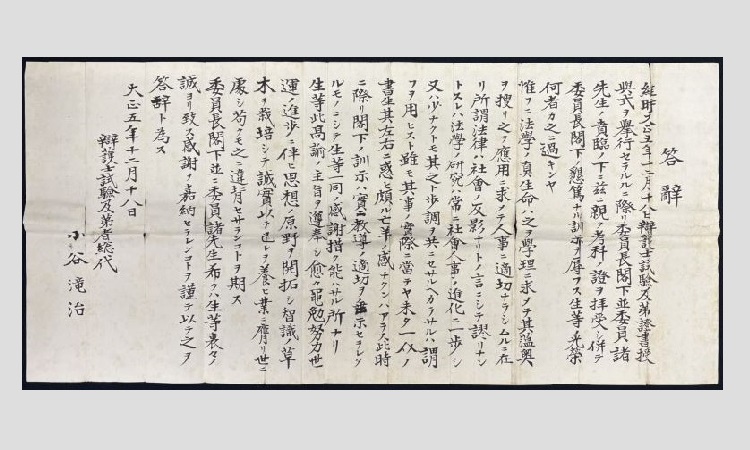 答辭
維時大正五年十二月十八日辯護士試驗及第證書授
與式ヲ擧行セラルルニ際リ委員長閣下並委員諸
先生ノ賁臨ノ下ニ茲ニ親シク考科ノ證ヲ拜受シ併テ
委員長閣下ノ懇篤ナル訓示ヲ辱フス生等光榮
何者カ之ニ過キンヤ
惟フニ法學ノ眞生命ハ之ヲ學理ニ求メテ其蘊奥
ヲ搜リ之ヲ應用ニ求メテ人事ニ適切ナラシムルニ在
リ所謂法律ハ社會ノ反影ナリトノ言ニシテ謬リナシ
トスレハ法學ノ研究ハ常ニ社會人事ノ進化ニ一歩ヲ
又ハ少ナクトモ其之ト歩調ヲ共ニセサルヘカラサルハ謂
フヲ用ヒスト雖モ其事ノ實際ニ當テヤ未タ一以ノ
書生其左右ニ惑ヒ頗ル亡羊ノ感ナクンハアラス此時
ニ際リ閣下ノ訓示ハ實ニ教導ノ適切ヲ示セラレタ
ルモノニシテ生等一同ノ感謝措ク能ハサル所ナリ
生等此高諭ノ主旨ヲ遵奉シ愈々黽勉努力世
運ノ進歩ニ伴ヒ思想ノ原野ヲ開拓シ智識ノ草
木ヲ栽培シテ誠實以テ之ヲ養ヒ業ニ膺リ世ニ
處シ苟クモ之ニ違背セサランコトヲ期ス
委員長閣下並ニ委員諸先生希クハ生等衷々ノ
誠ヨリ致ス感謝ヲ嘉納セラレンコトヲ謹テ以テ之ヲ
答辭ト為ス
大正五年十二月十八日
辯護士試驗及第者總代
小谷滝治